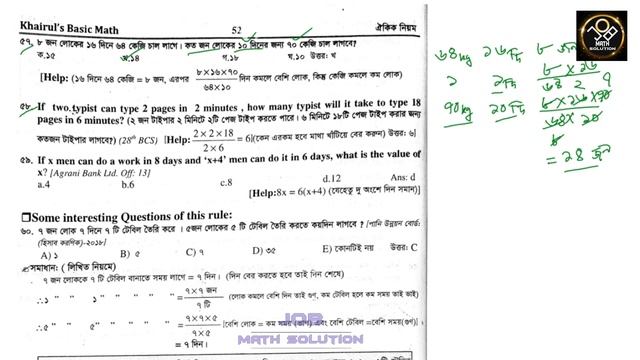 Khairul's Basic Math 52 ঐকিক নিয়ম
৫৭. ৮ জন লোকের ১৬ দিনে ৬৪ কেজি চাল লাগে। কত জন লোকের ১০ দিনের জন্য ৭০ কেজি চাল লাগবে?
ক.১৫ খ.১৪ গ.১৮ ঘ.১০ উত্তর: খ
[Help: (১৬ দিনে ৬৪ কেজি = ৮ জন, এরপর ৮×১৬×৭০ / ৬৪×১০ দিন কমলে বেশি লোক, কিন্তু কেজি কমলে কম লোক]
৫৮. If two typist can type 2 pages in 2 minutes , how many typist will it take to type 18
pages in 6 minutes? (২ জন টাইপার ২ মিনিটে ২টি পেজ টাইপ করতে পারে। ৬ মিনিটে ১৮টি পেজ টাইপ করার জন্য
কতজন টাইপার লাগবে?) (28th BCS) [Help: 2×2×18 / 2×6 = 6](কেন এরকম হবে মাথা খাঁটিয়ে বের করুন) উত্তর: ৬]
৫৯. If x men can do a work in 8 days and 'x+4' men can do it in 6 days, what is the value of
x? [Agrani Bank Ltd. Off: 13]
a.4 b.6 c.8 d.12 Ans: d
[Help:8x = 6(x+4) (যেহেতু দু অংশে দিন সমান)]
❒Some interesting Questions of this rule:
৬০. ৭ জন লোক ৭ দিনে ৭ টি টেবিল তৈরি করে । ৫জন লোকের ৫ টি টেবিল তৈরি করতে কয়দিন লাগবে ? [পানি উন্নয়ন বোর্ড:
(হিসাব করণিক)-২০১৮]
A) ১ B) ৫ C) ৭ D) ৩৫ E) কোনটিই নয় উত্তর: C
সমাধান: ( লিখিত নিয়মে)
৭ জন লোককে ৭ টি টেবিল বানাতে সময় লাগে = ৭ দিন। (দিন বের করতে হবে তাই দিন শেষে)
∴১ " " ১ " " " " = ৭×৭ জন / ৭ টি (লোক কমলে বেশি দিন তাই গুণ, কম টেবিল হলে কম সময় তাই ভাগ)
∴৫ " " ৫ " " " " = ৭×৭×৫ / ৭×৫ [বেশি লোক = কম সময় (ভাগ) এবং বেশি টেবিল =বেশি সময়(গুণ)]
= ৭ দিন।
JOB
MATH SOLUTION
JOB
MATH
SOLUTION
৬৪kg ১৬ দি ৮ জন